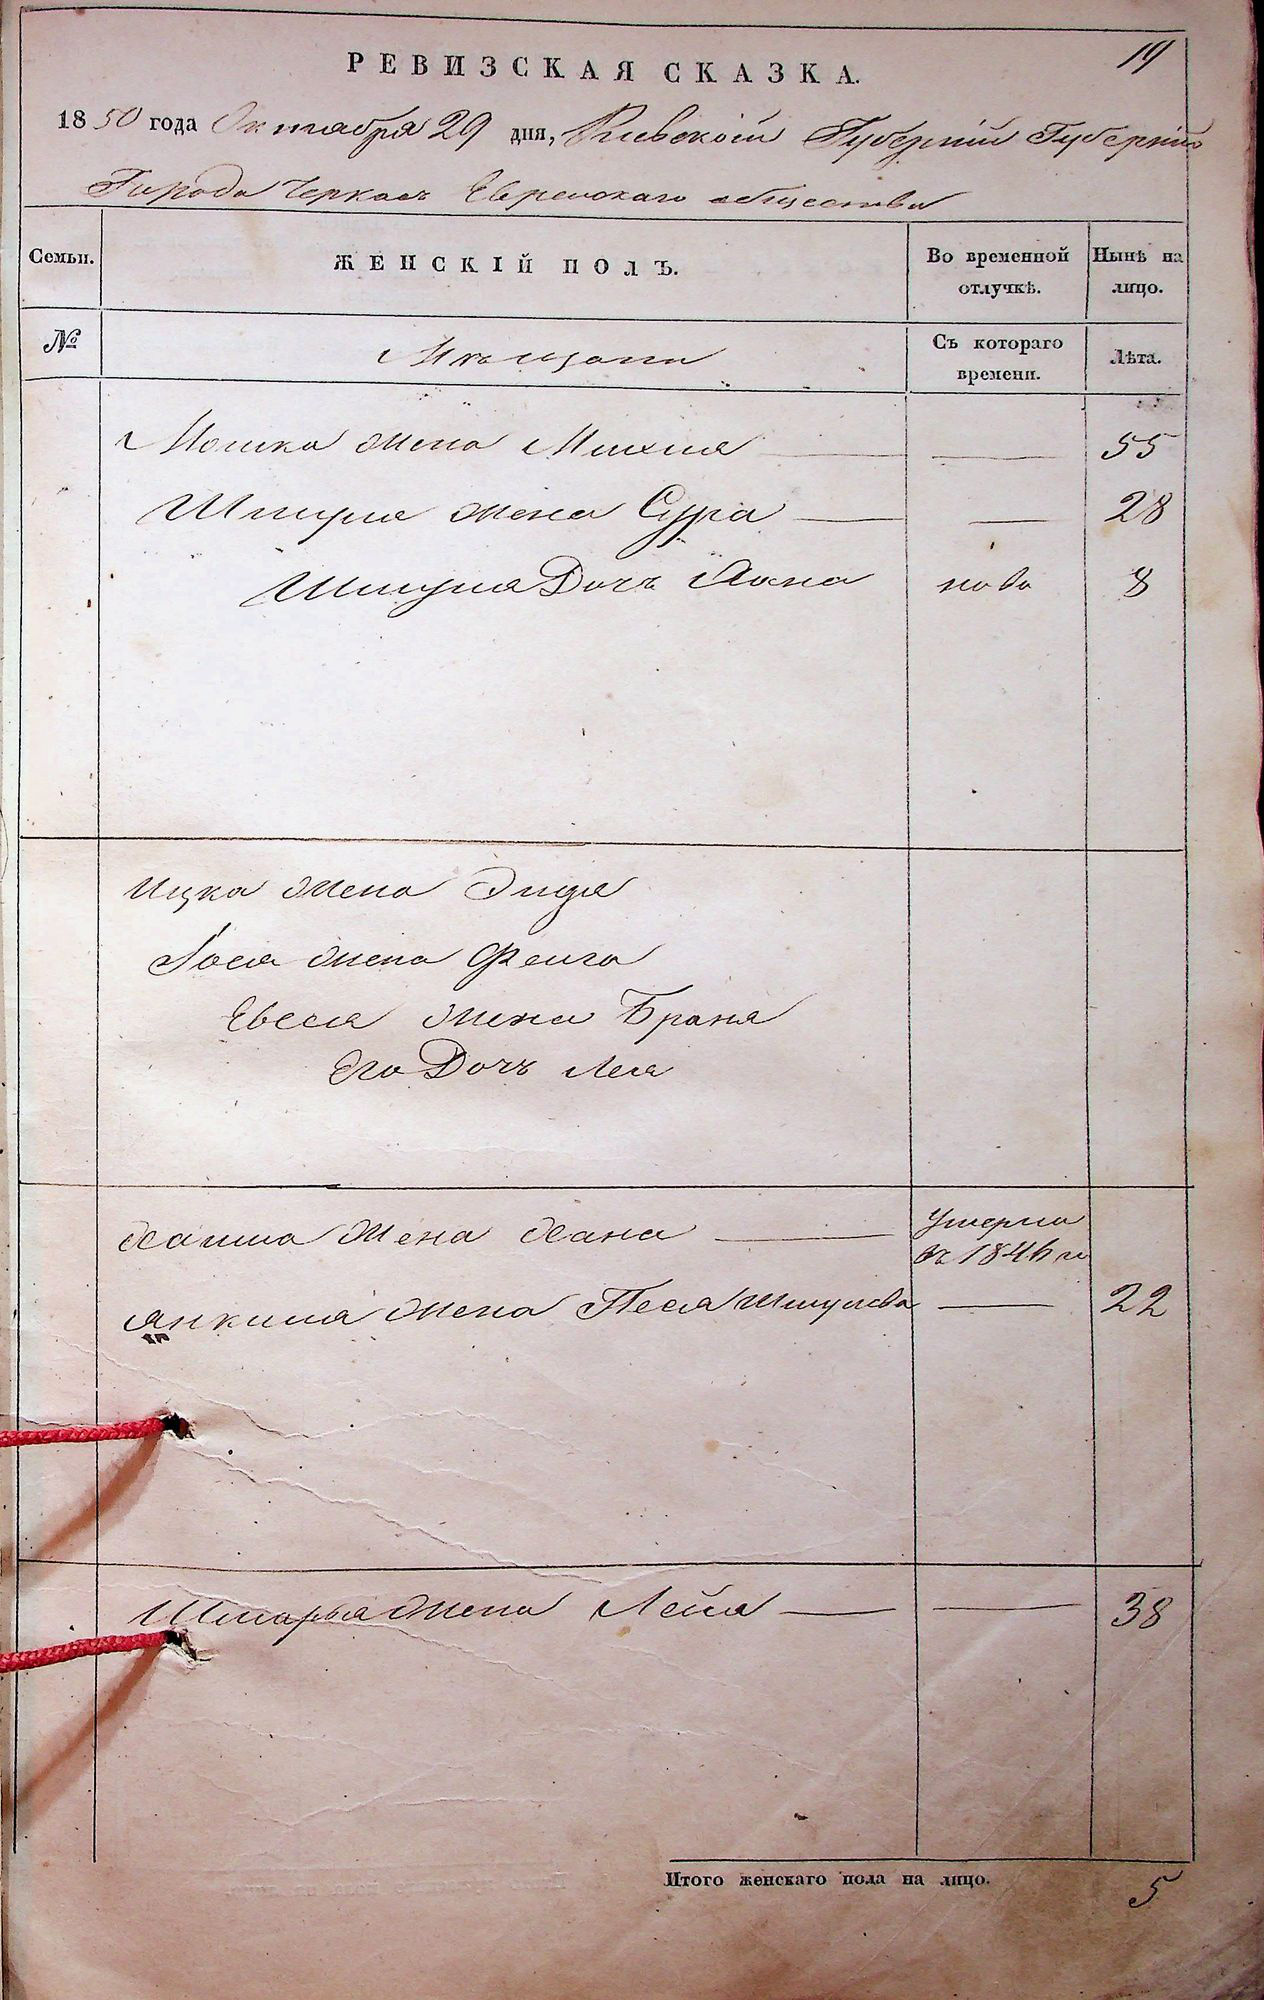 19
РЕВИЗСКАЯ СКАЗКА.
1850 года Октября 29 дня, Киевской Губерніи Губерніи
Города Черкасъ Еврейскаго общества
Семьи.
ЖЕНСКІЙ ПОЛЪ.
Во временной отлучкѣ.
Нынѣ на лицо.
№
Мѣщани
Съ котораго времени.
Лѣта.
Мошка жена Михля — — 55
Шмуля жена Сура — — 28
Шмуля Дочь Хана нова 8
Ицка жена Эидя
Іося жена Фейга
Евсея жена Браня
Его Дочь Лея
Хаима Жена Хана — Умерла въ 1846 м
Янкиля жена Песя Шмулева — 22
Шмарья жена Лейя — — 38
Итого женскаго пола на лицо. 5